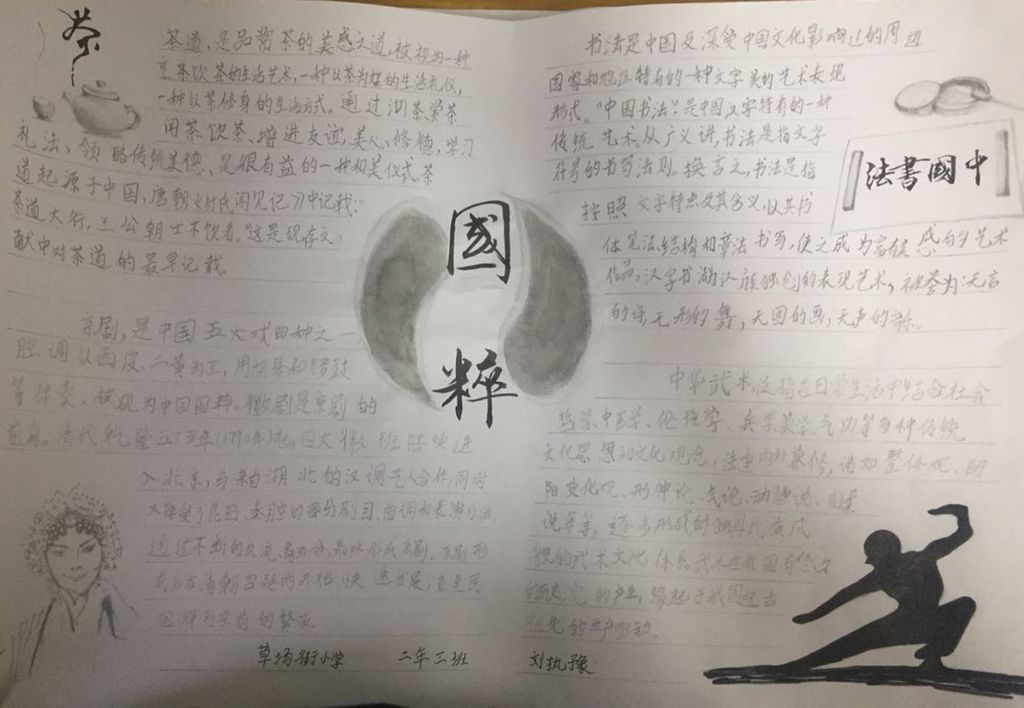 茶
茶道,是品赏茶的美感之道,被视为一种
烹茶饮茶的生活艺术,一种以茶为媒的生活礼仪,
一种以茶修身的生活方式。通过沏茶赏茶
闻茶、饮茶、增进友谊,美心、修德,学习
礼法,领略传统美德,是很有益的一种和美仪式。茶
道起源于中国,唐朝《封氏闻见记》中记载:
茶道大行,王公朝士不饮者。"这是现存文
献中对茶道的最早记载。
京剧,是中国五大戏曲种之一
腔调以西皮、二黄为主,用胡琴和锣鼓
等伴奏,被视为中国国粹。徽剧是京剧的
前身。清代乾隆五十五年(1790年)起,四大徽班陆续进
入北京,与来自湖北的汉调艺人合作,同时
又接受了昆曲、秦腔的部分剧目、曲调和表演方法,
通过不断的交流、融合,最终形成京剧。京剧形
成后在清朝宫廷内开始快速发展,直至民
国得到空前的繁荣
國
粹
书法是中国及深受中国文化影响过的周边
国家和地区特有的一种文字美的艺术表现
形式。"中国书法",是中国汉字特有的一种
传统艺术。从广义讲,书法是指文字
符号的书写法则。换言之,书法是指
按照文字特点及其含义,以其书
体笔法、结构和章法书写,使之成为富有感的艺术
作品,汉字书法汉族独创的表现艺术,被誉为:无言
的诗无形的舞,无图的画,无声的歌。
法書國中
中华武术,泛指在日常生活中结合社会
哲学、中医学、伦理学、兵学、美学、气功等多种传统
文化思想和文化观念,注重内外兼修,诸如整体观、阴
阳变化观、形神论、气论、动静说、刚柔
说等等,逐步形成的独具民族风
貌的武术文化体系。武术在我国有悠久
历史,它的产生,缘起于我国远古
祖先的生产劳动。
草场街小学 二年三班 刘执豫